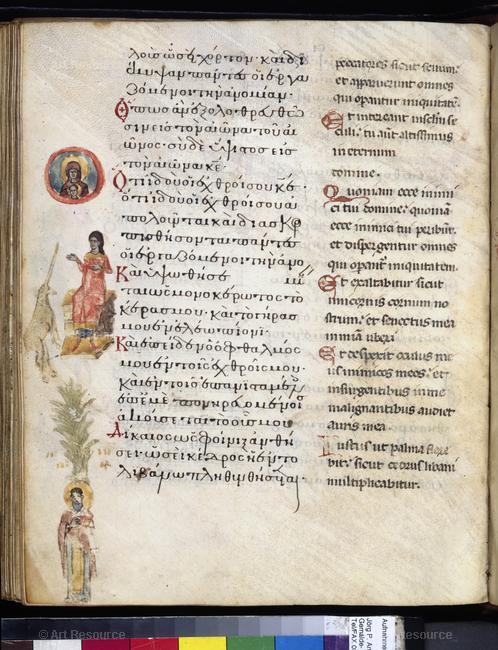 λοὶ ὡσεὶ χόρτον· καὶ δι
έκυψαν πάντες οἱ ἐργα
ζόμενοι τὴν ἀνομίαν·
Ὅπως ἂν ἐξολοθρευθῶ
σιν εἰς τὸν αἰῶνα τοῦ αἰ
ῶνος· σὺ δὲ ὕψιστος εἰς
τὸν αἰῶνα κε·
Ὅτι ἰδοὺ οἱ ἐχθροί σου κε·
ὅτι ἰδοὺ οἱ ἐχθροί σου ἀ
πολοῦνται καὶ διασκορ
πισθήσονται πάντες
οἱ ἐργαζόμενοι τὴν ἀνο
Καὶ ὑψωθήσε
ται ὡς μονοκέρωτος τὸ
κέρας μου· καὶ τὸ γῆρας
μου ἐν ἐλέω πίονι·
Καὶ ἐπεῖδεν ὁ ὀφθαλμός
μου ἐν τοῖς ἐχθροῖς μου·
καὶ ἐν τοῖς ἐπανισταμέν
ἐπ ἐμὲ πονηρευομένοις
ἀκούσεται τὸ οὖς μου
Δίκαιος ὡς φοῖνιξ ἀνθή
σει· ὡσεὶ κέδρος ἡ ἐν τῷ
λιβάνω πληθυνθήσεται·
peccatores sicut fenum·
et apparuerunt omnes
qui opantur iniquitatē·
Et intereant
culi· tu aut altissimus
in eternum
domine·
Quoniam ecce inimi
ci tui domine· quoniā
ecce inimici tui peribūt·
et dispergentur omnes
qui opant iniquitatem·
Et exaltabitur sicut
unicornis cornu no
strum· et senectus mea
in mīa uberi
Et despexit oculus me
us inimicos meos· et
insurgentibus in me
malignantibus audiet
auris mea·
Iustus ut palma flore
bit· sicut cedrus libani
multiplicabitur·
© Art Resource
Art Resource
Aufnahme
Jörg P. An
Gemälde
Tel/FAX